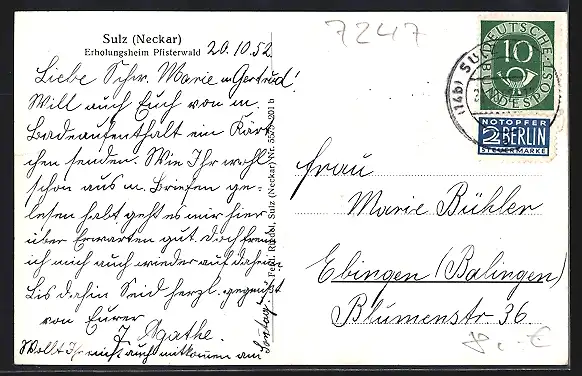 7247
Sulz (Neckar)
Erholungsheim Pfisterwald
20.10.52
Liebe Schw. Marie u Gertrud!
Will auch Euch von m.
Badeaufenthalt ein Kärt
chen senden. Wie Ihr wohl
schon aus m. Briefen ge-
lesen habt geht es mir hier
über Erwarten gut. Doch freue
ich mich auch wieder auf daheim
Bis dahin Seid herzl. gegrüßt
von Eurer
J. Agathe.
Wollt Ihr nicht auch mitkommen am
Sonntag?
Ferd. Sulz (Neckar) Nr.
DEUTSCHE
BUNDESPOST
10
(14b) SULZ
NOTOPFER
2 BERLIN
STEUERMARKE
Frau
Marie Bühler
Ebingen (Balingen)
Blumenstr 36
8,- €